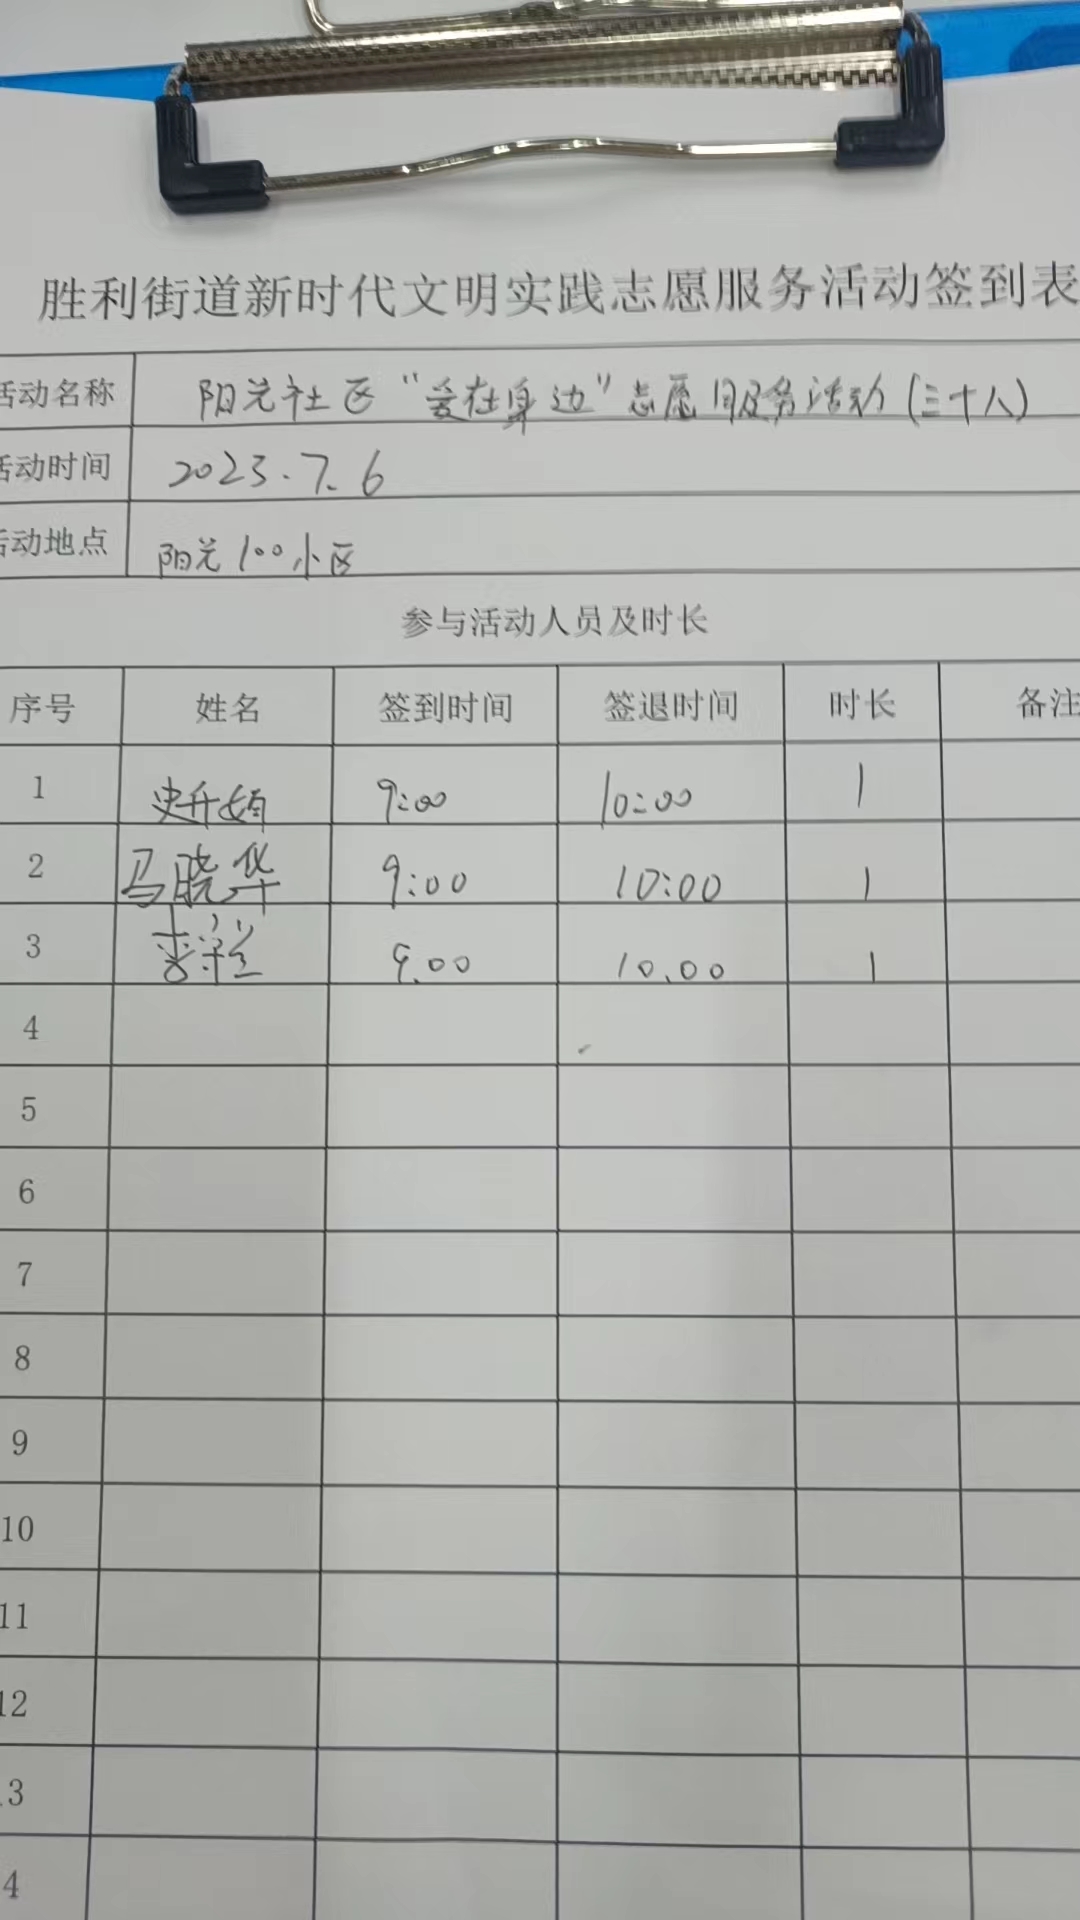 胜利街道新时代文明实践志愿服务活动签到表
活动名称 阳光社区“爱在身边”志愿服务活动(三十八)
活动时间 2023.7.6
活动地点 阳光100小区
参与活动人员及时长
序号 姓名 签到时间 签退时间 时长 备注
1 9:00 10:00 1
2 马晓华 9:00 10:00 1
3 李 9.00 10.00 1
4
5
6
7
8
9
10
11
12
13
4